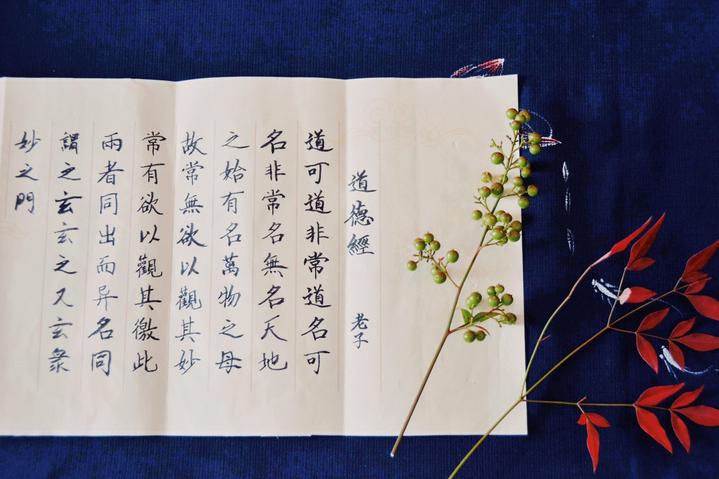 道德經 老子
道可道非常道名可
名非常名無名天地
之始有名萬物之母
故常無欲以觀其妙
常有欲以觀其徼此
兩者同出而异名同
謂之玄玄之又玄衆
妙之門